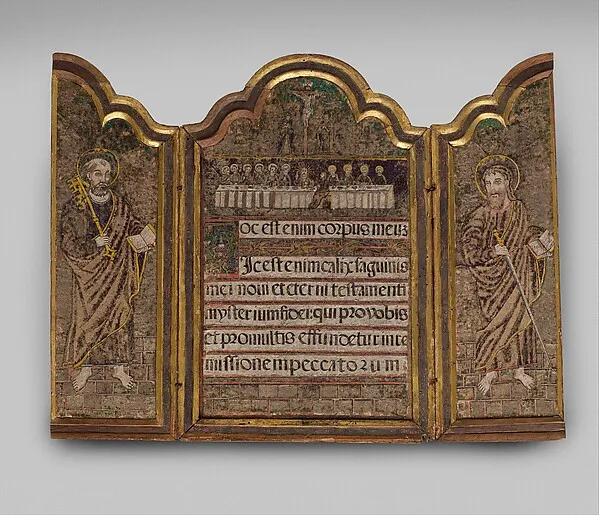 oc est enim corpus meuz
Ic est enim calix sanguinis
mei noui et eterni testamenti
mysterium fidei: qui pro vobis
et pro multis effundetur in re
missionem peccatorum: